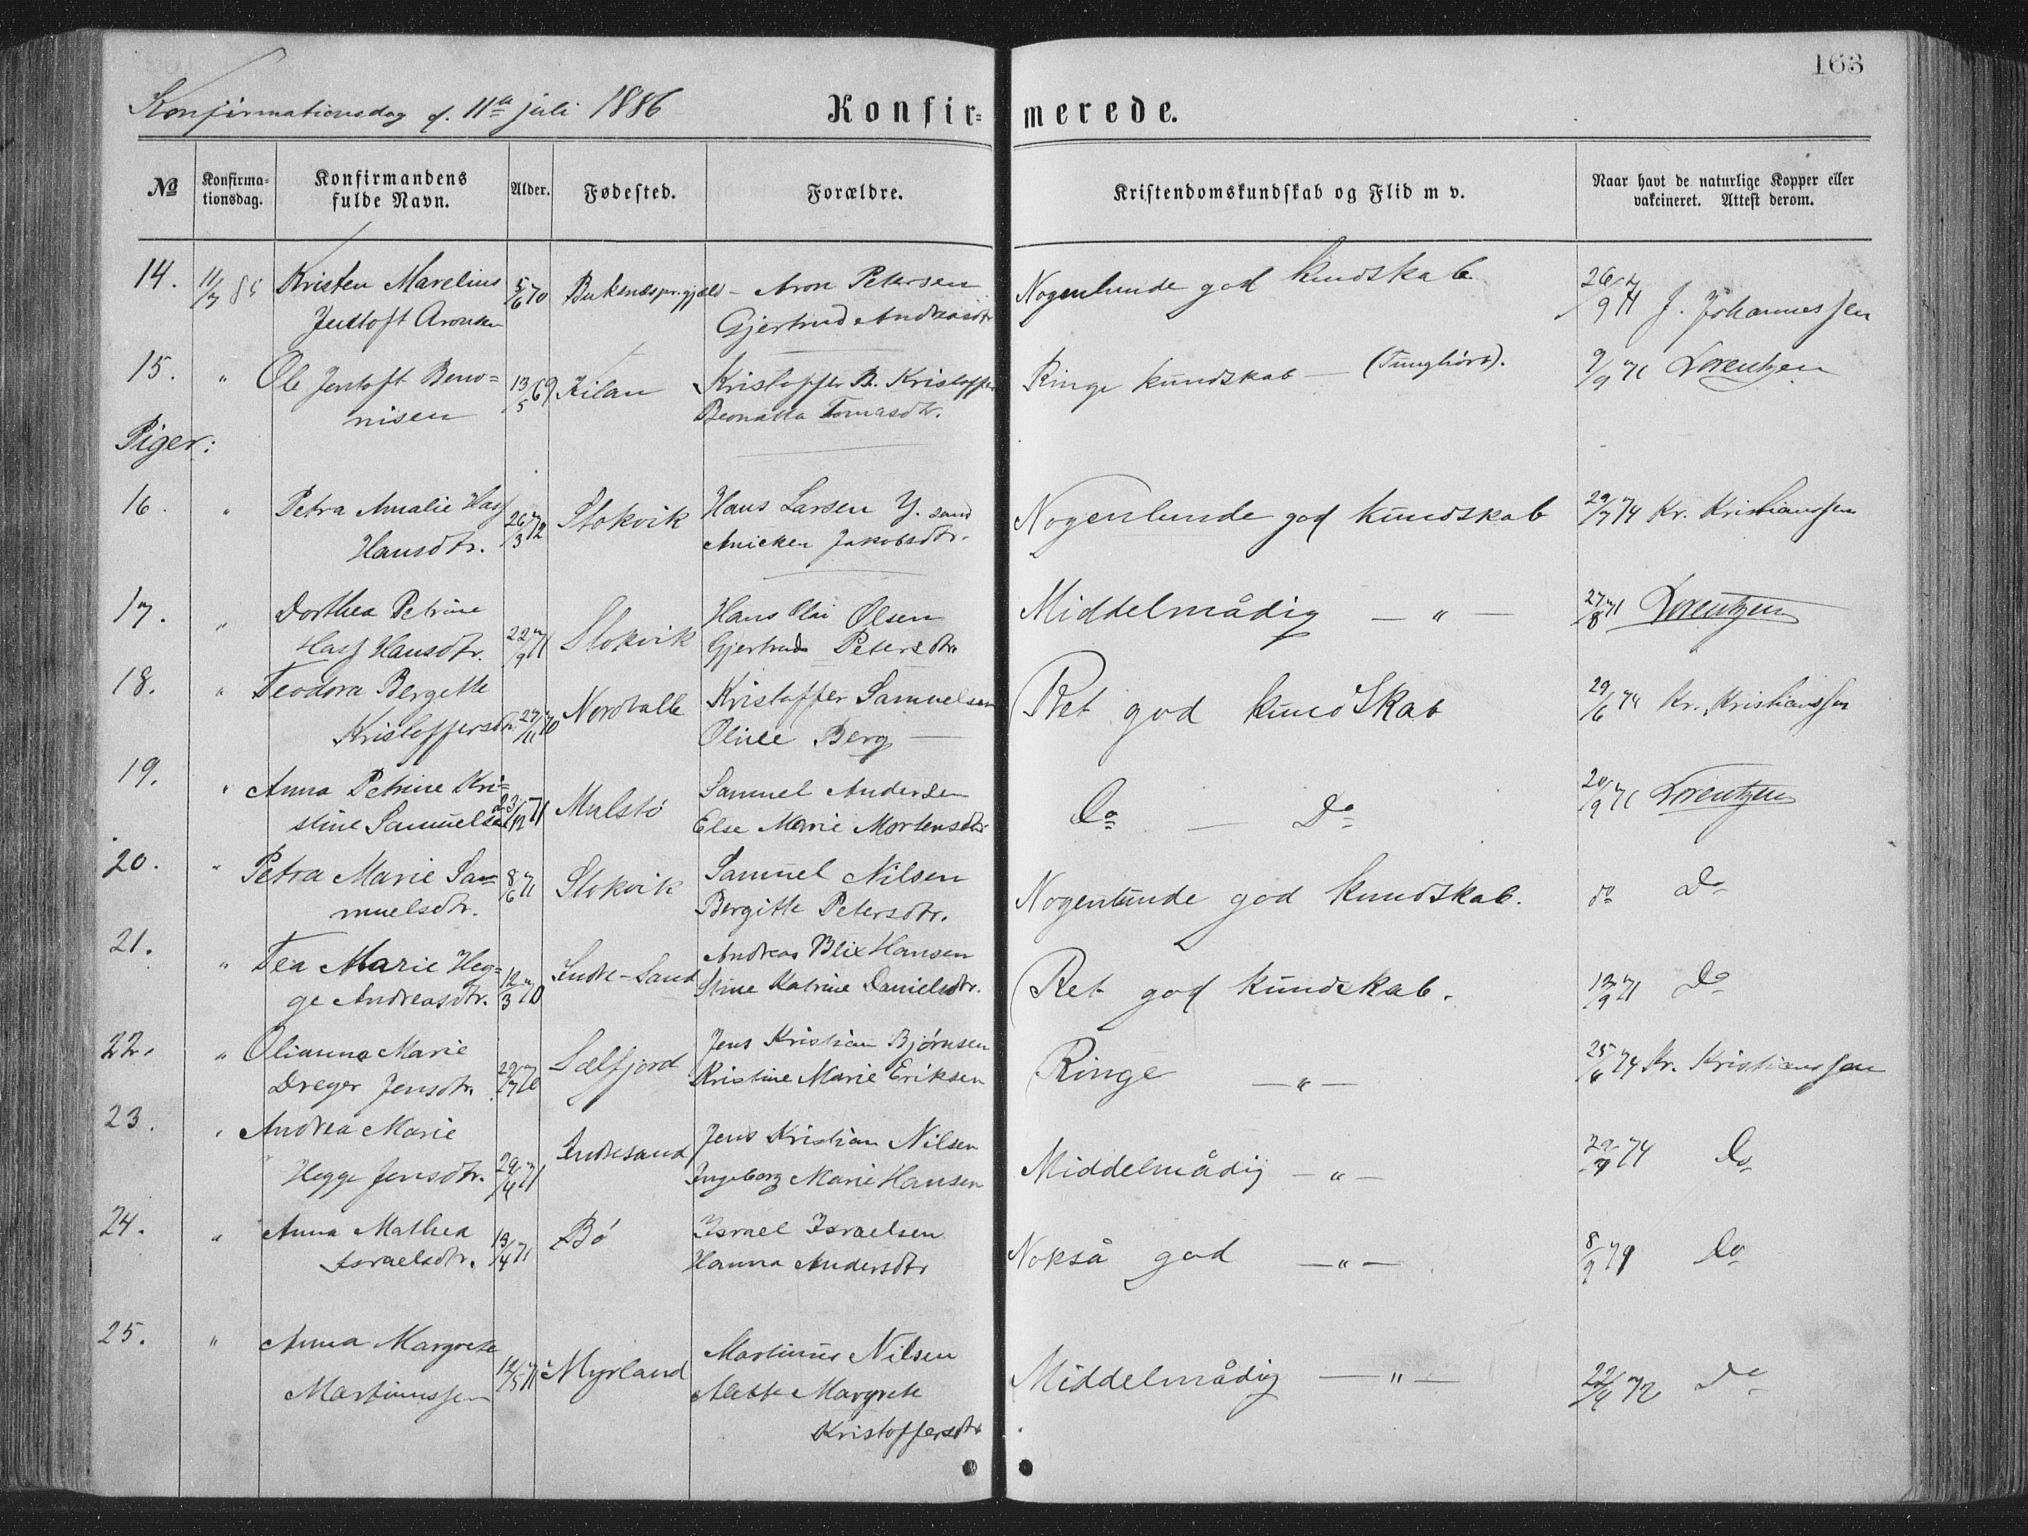 163
Konfirmationsdag d. 11te juli 1886
Konfir- merede.
No Konfirma-tionsdag. Konfirmandens fulde Navn. Alder. Fødested. Forældre. Kristendomskundskab og Flid m v. Naar havt de naturlige Kopper eller vakcineret. Attest derom.
14. 11/7 85 Kristen Marelius 5/6 70 Buksnæs pr.gjæld - Aron Petersen Nogenlunde god kundskab 26/9 71 J. Johannessen
Jentoft Aronsen Gjertrud Andreasdtr
15. " Ole Jentoft Beno= 13/5 69 Kilan Kristoffer B. Kristoffer Ringe kundskab - (Tunghört). 9/9 71 Lorentzen
nisen Beonatta Tomasdtr.
Piger:
16. " Petra Amalie Hass 26/3 72 Stokvik Hans Larsen Y. sand Nogenlunde god kundskab 29/7 74 Kr. Kristianssen
Hansdtr. Anicken Jakobsdtr.
17. " Dorthea Petrine 22/9 71 Stokvik Hans Olai Olsen Middelmådig - " - 27/8 71 Lorentzen
Hass Hansdtr. Gjertrud Petersdtr
18. " Teodora Bergette 27/11 70 Nordvalle Kristoffer Samuelsen Ret god kundskab 29/6 74 Kr. Kristianssen
Kristoffersdtr. Oline Berg
19. " Anna Petrine Kri= 23/12 71 Mulstö Samuel Andersen Do - Do 20/9 71 Lorentzen
stine Samuelsen Else Marie Mortensdtr
20. " Petra Marie Sa= 8/6 71 Stokvik Samuel Nilsen Nogenlunde god kundskab. do Do
muelsdtr. Bergitte Petersdtr.
21. " Tea Marie Heg= 12/3 70 Indre-Sand Andreas Blix Hansen Ret god kundskab. 12/9 71 Do
ge Andreasdtr. Stine Katrine Danielsdtr.
22. " Olianna Marie 29/7 70 Sælfjord Jens Kristian Bjørnsen Ringe - " - 25/6 74 Kr. Kristianssen
Dreyer Jensdtr. Kristine Marie Eriksen
23. " Andrea Marie 29/4 71 Indresand Jens Kristian Nilsen Middelmådig - " - 29/7 74 Do
Hegge Jensdtr. Ingeborg Marie Hansen
24. " Anna Mathea 13/4 71 Bö Israel Israelsen Nokså god - " - 8/9 79 Do
Israelsdtr. Hanna Andersdtr
25. " Anna Margrete 12/5 71 Myrland Martinus Nilsen Middelmådig - " - 22/9 72 Do
Martinussen Alette Margrete
Kristoffersdtr